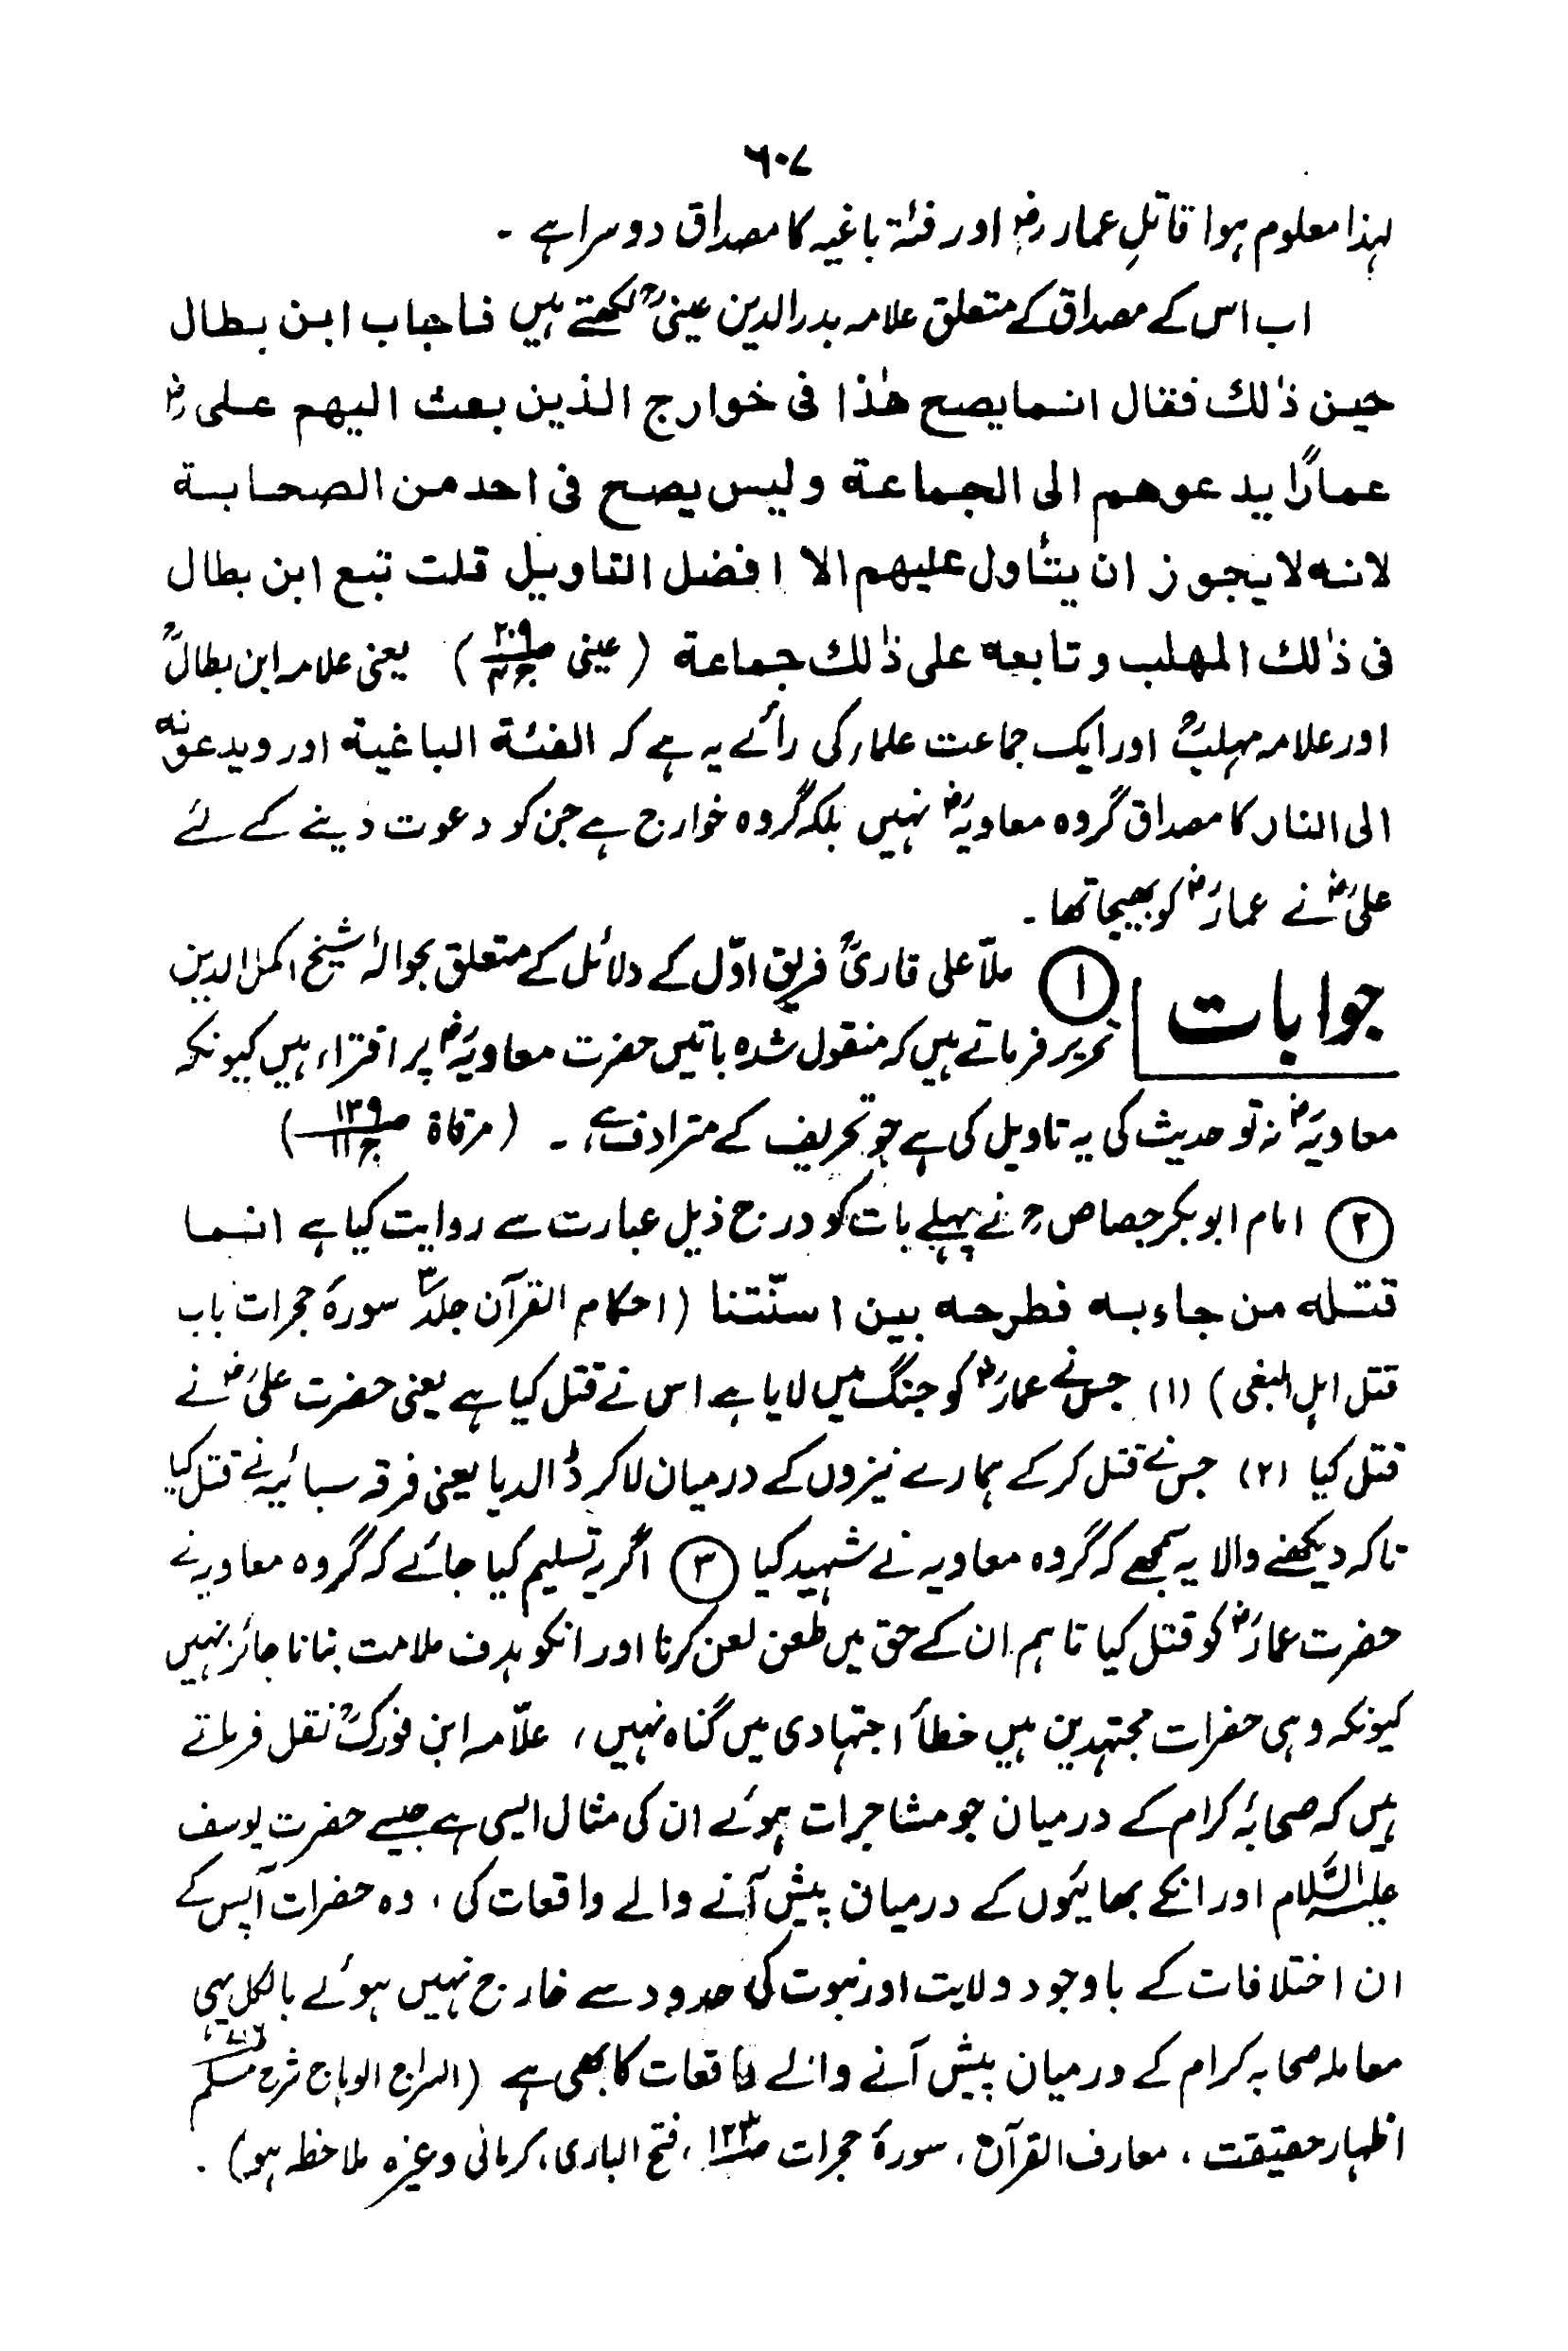 ۶۰۷
لہذا معلوم ہوا قاتلِ عمار رضؓ اور فئۃ باغیہ کا مصداق دوسرا ہے ۔
اب اس کے مصداق کے متعلق علامہ بدرالدین عینیؒ لکھتے ہیں فاجاب ابن بطال
حین ذٰلک فقال انما یصح ھٰذا فی خوارج الذین بعث الیھم علی رضؓ
عمارًا یدعوھم الی الجماعۃ ولیس یصح فی احد من الصحابۃ
لانہ لا یجوز ان یتأول علیھم الا افضل التاویل قلت تبع ابن بطال
فی ذٰلک المھلب وتابعہ علی ذٰلک جماعۃ (عینی ص۲۰۹ ج۴) یعنی علامہ ابن بطالؒ
اور علامہ مہلبؒ اور ایک جماعت علماء کی رائے یہ ہے کہ الفئۃ الباغیۃ اور ویدعونہ
الی النار کا مصداق گروہ معاویہؓ نہیں بلکہ گروہ خوارج ہے جن کو دعوت دینے کے لئے
علیؓ نے عمارؓ کو بھیجا تھا ۔
جوابات ① ملّا علی قاریؒ فریق اوّل کے دلائل کے متعلق بحوالۂ شیخ اکمل الدین
تحریر فرماتے ہیں کہ منقول شدہ باتیں حضرت معاویہؓ پر افتراء ہیں کیونکہ
معاویہؓ نہ تو حدیث کی یہ تاویل کی ہے جو تحریف کے مترادف ہے ۔ (مرقاۃ ص۱۳۹ ج۱۱)
② امام ابوبکر جصاصؒ نے پہلے بات کو درج ذیل عبارت سے روایت کیا ہے انما
قتلہ من جاء بہ فطرحہ بین اسنّتنا (احکام القرآن جلد۳ سورۂ حجرات باب
قتل اہل البغی) (۱) جس نے عمارؓ کو جنگ میں لایا ہے اس نے قتل کیا ہے یعنی حضرت علیؓ نے
قتل کیا (۲) جس نے قتل کر کے ہمارے نیزوں کے درمیان لا کر ڈالدیا یعنی فرقہ سبائیہ نے قتل کیا
تاکہ دیکھنے والا یہ سمجھے کہ گروہ معاویہ نے شہید کیا ③ اگر یہ تسلیم کیا جائے کہ گروہ معاویہ نے
حضرت عمارؓ کو قتل کیا تاہم ان کے حق میں طعن لعن کرنا اور انکو ہدف ملامت بنانا جائز نہیں
کیونکہ وہی حضرات مجتہدین ہیں خطأ اجتہادی میں گناہ نہیں ، علّامہ ابن فورکؒ نقل فرماتے
ہیں کہ صحابۂ کرام کے درمیان جو مشاجرات ہوئے ان کی مثال ایسی ہے جیسے حضرت یوسف
علیہ السّلام اور انکے بھائیوں کے درمیان پیش آنے والے واقعات کی ، وہ حضرات آپس کے
ان اختلافات کے باوجود ولایت اور نبوت کی حدود سے خارج نہیں ہوئے بالکل یہی
معاملہ صحابہ کرام کے درمیان پیش آنے والے واقعات کا بھی ہے (السراج الوہاج شرح مسلم
اظہار حقیقت ، معارف القرآن ، سورۂ حجرات ، فتح الباری ، کرمانی وغیرہ ملاحظہ ہو) ۔